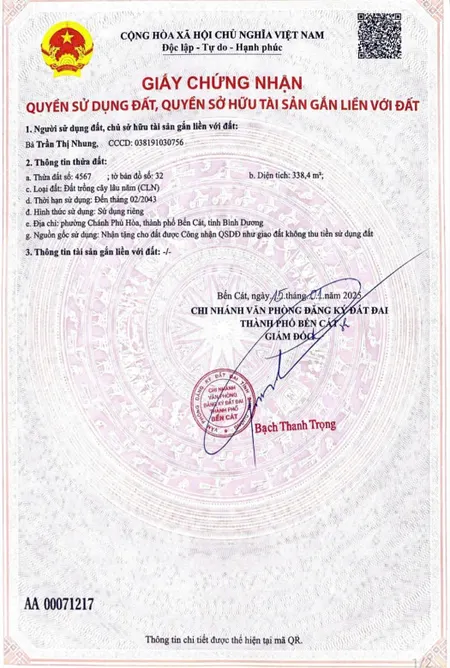 CỘNG HÒA XÃ HỘI CHỦ NGHĨA VIỆT NAM
Độc lập - Tự do - Hạnh phúc
GIẤY CHỨNG NHẬN
QUYỀN SỬ DỤNG ĐẤT, QUYỀN SỞ HỮU TÀI SẢN GẮN LIỀN VỚI ĐẤT
1. Người sử dụng đất, chủ sở hữu tài sản gắn liền với đất:
Bà Trần Thị Nhung, CCCD: 038191030756
2. Thông tin thửa đất:
a. Thửa đất số: 4567 ; tờ bản đồ số: 32 b. Diện tích: 338,4 m²;
c. Loại đất: Đất trồng cây lâu năm (CLN)
d. Thời hạn sử dụng: Đến tháng 02/2043
đ. Hình thức sử dụng: Sử dụng riêng
e. Địa chỉ: phường Chánh Phú Hòa, thành phố Bến Cát, tỉnh Bình Dương
g. Nguồn gốc sử dụng: Nhận tặng cho đất được Công nhận QSDĐ như giao đất không thu tiền sử dụng đất
3. Thông tin tài sản gắn liền với đất: -/-
Bến Cát, ngày 15 tháng 01 năm 2025
CHI NHÁNH VĂN PHÒNG ĐĂNG KÝ ĐẤT ĐAI
THÀNH PHỐ BẾN CÁT
GIÁM ĐỐC
CHI NHÁNH
VĂN PHÒNG
ĐĂNG KÝ ĐẤT ĐAI
THÀNH PHỐ
BẾN CÁT
Bạch Thanh Trọng
AA 00071217
Thông tin chi tiết được thể hiện tại mã QR.